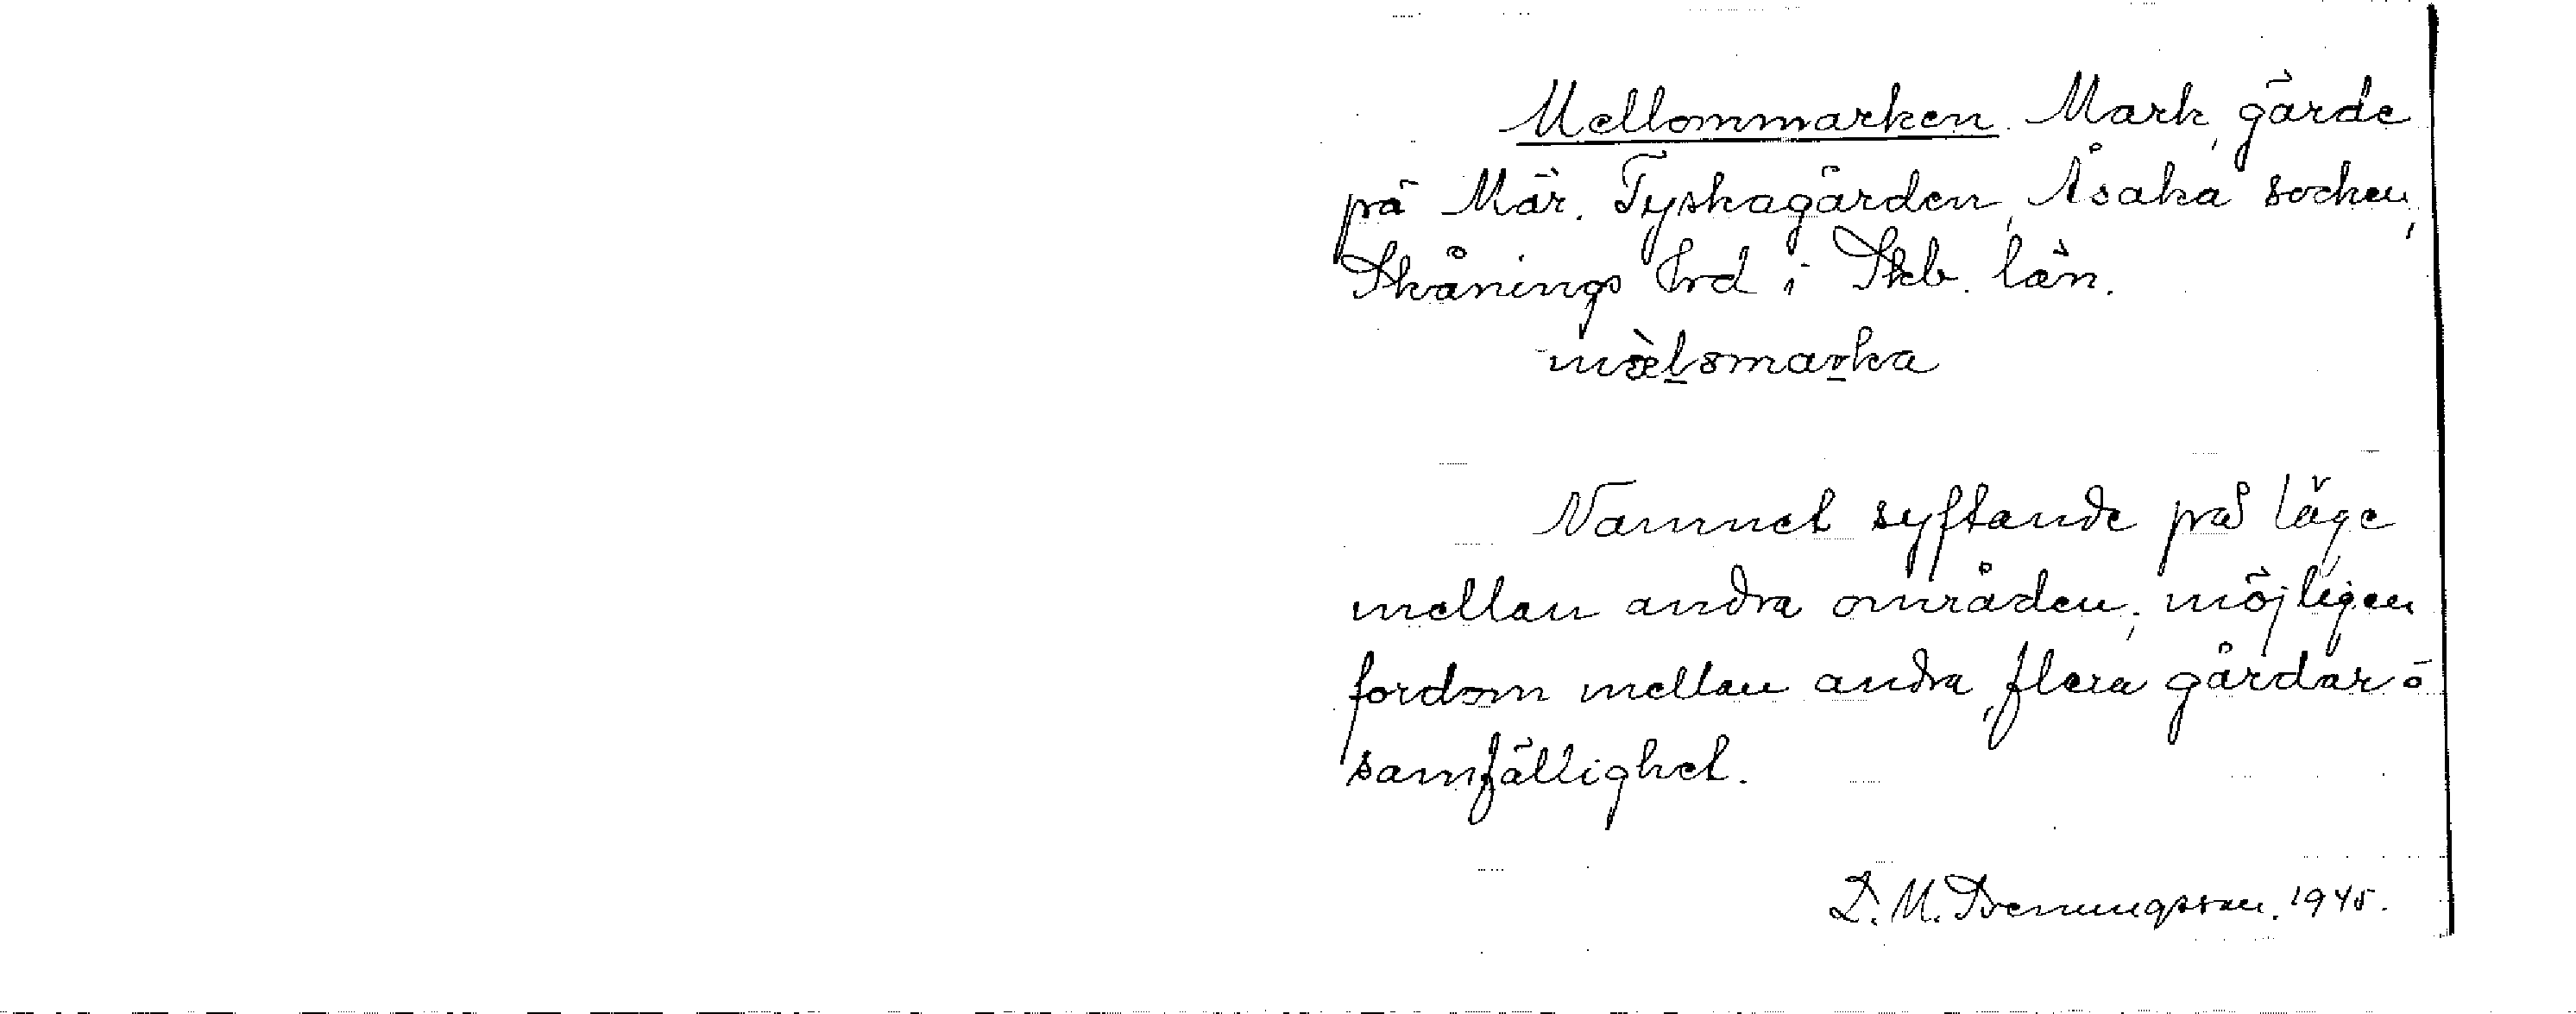 Mellommarken. Mark, gärde
på Mär. Tyskagården, Åsaka socken,
Skånings hrd i Skb. län.
mæ̀lomarka
Namnet syftande på läge
mellan andra områden, möjligen
fordom mellan andra, flera gårdar ò
samfällighet.
D. M. 1945.